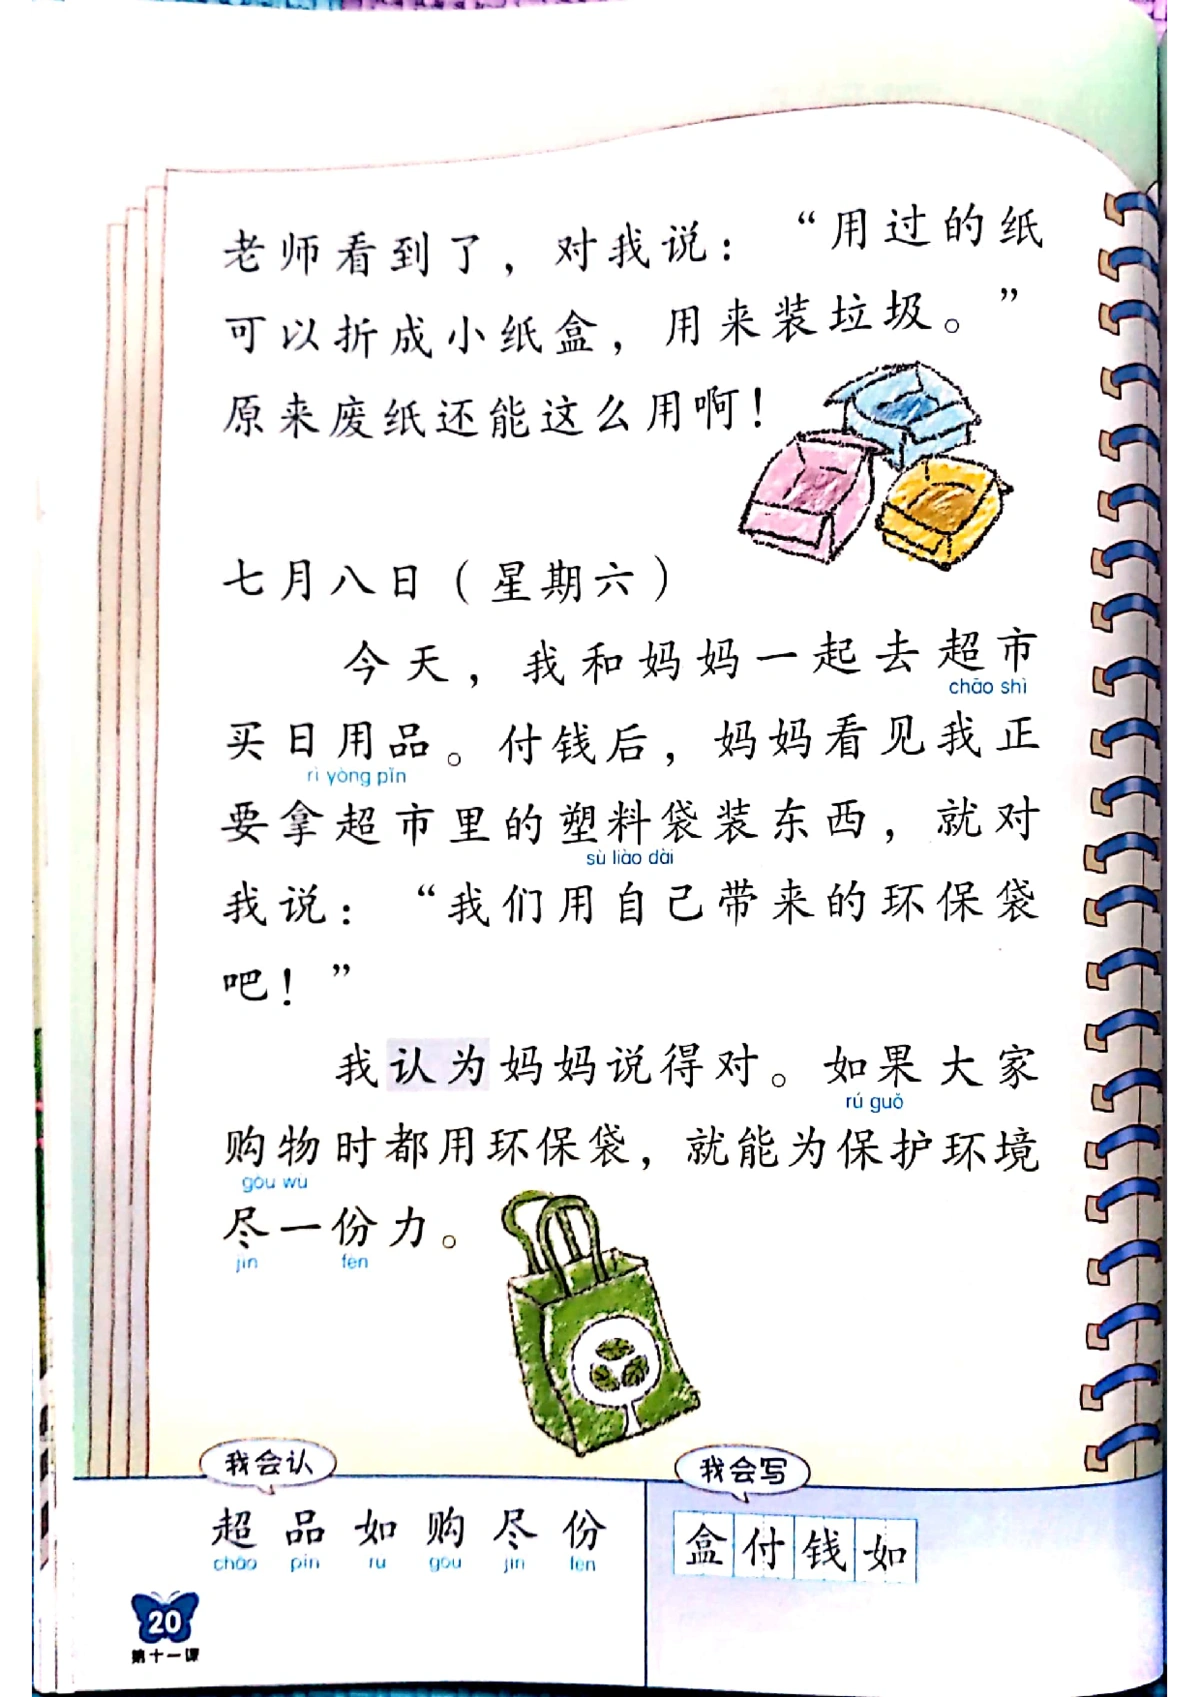 老师看到了，对我说：“用过的纸
可以折成小纸盒，用来装垃圾。”
原来废纸还能这么用啊！
七月八日（星期六）
今天，我和妈妈一起去超市
chāo shì
买日用品。付钱后，妈妈看见我正
rì yòng pǐn
要拿超市里的塑料袋装东西，就对
sù liào dài
我说：“我们用自己带来的环保袋
吧！”
我认为妈妈说得对。如果大家
rú guǒ
购物时都用环保袋，就能为保护环境
gòu wù
尽一份力。
jìn fèn
我会认
超 品 如 购 尽 份
chāo pǐn rú gòu jìn fèn
我会写
盒 付 钱 如
20
第十一课